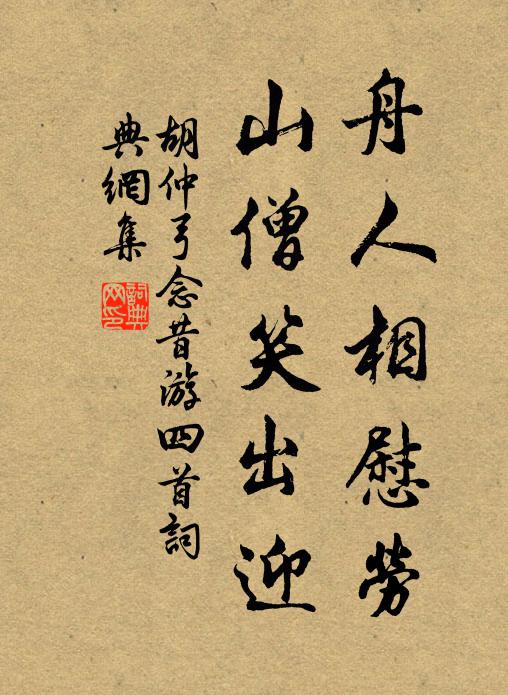 舟人相慰勞
山僧笑出迎
胡仲弓念昔游四首詞
典網集
詞典
网印